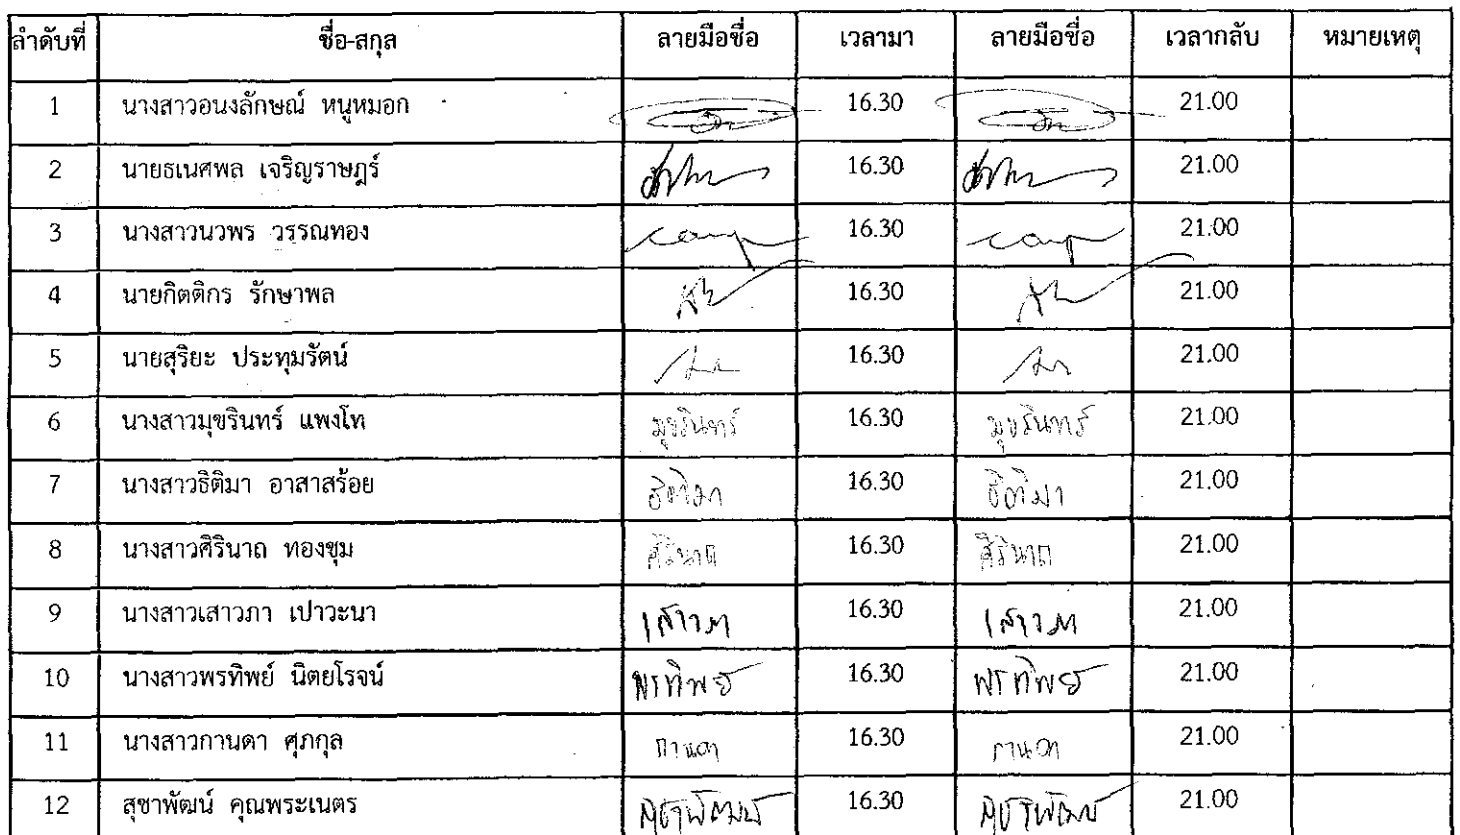 ลำดับที่ ชื่อ-สกุล ลายมือชื่อ เวลามา ลายมือชื่อ เวลากลับ หมายเหตุ
1 นางสาวอนงลักษณ์ หนูหมอก 16.30 21.00
2 นายธเนศพล เจริญราษฎร์ 16.30 21.00
3 นางสาวนวพร วรรณทอง 16.30 21.00
4 นายกิตติกร รักษาพล 16.30 21.00
5 นายสุริยะ ประทุมรัตน์ 16.30 21.00
6 นางสาวมุขรินทร์ แพงโท มุขรินทร์ 16.30 มุขรินทร์ 21.00
7 นางสาวธิติมา อาสาสร้อย ธิติมา 16.30 ธิติมา 21.00
8 นางสาวศิรินาถ ทองชุม ศิรินาถ 16.30 ศิรินาถ 21.00
9 นางสาวเสาวภา เปาวะนา เสาวภา 16.30 เสาวภา 21.00
10 นางสาวพรทิพย์ นิตยโรจน์ พรทิพย์ 16.30 พรทิพย์ 21.00
11 นางสาวกานดา ศุภกุล กานดา 16.30 กานดา 21.00
12 สุชาพัฒน์ คุณพระเนตร สุชาพัฒน์ 16.30 สุชาพัฒน์ 21.00